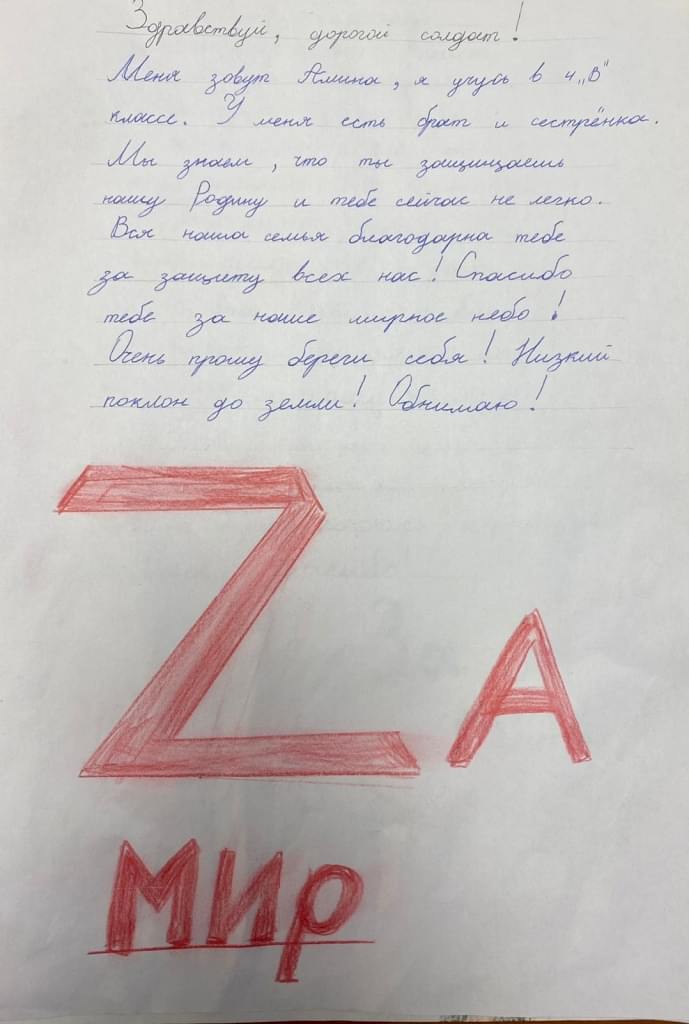 Здравствуй, дорогой солдат!
Меня зовут Амина, я учусь в 4 „В"
классе. У меня есть брат и сестрёнка.
Мы знаем, что ты защищаешь
нашу Родину и тебе сейчас не легко.
Вся наша семья благодарна тебе
за защиту всех нас! Спасибо
тебе за наше мирное небо!
Очень прошу береги себя! Низкий
поклон до земли! Обнимаю!
ZА
МИР